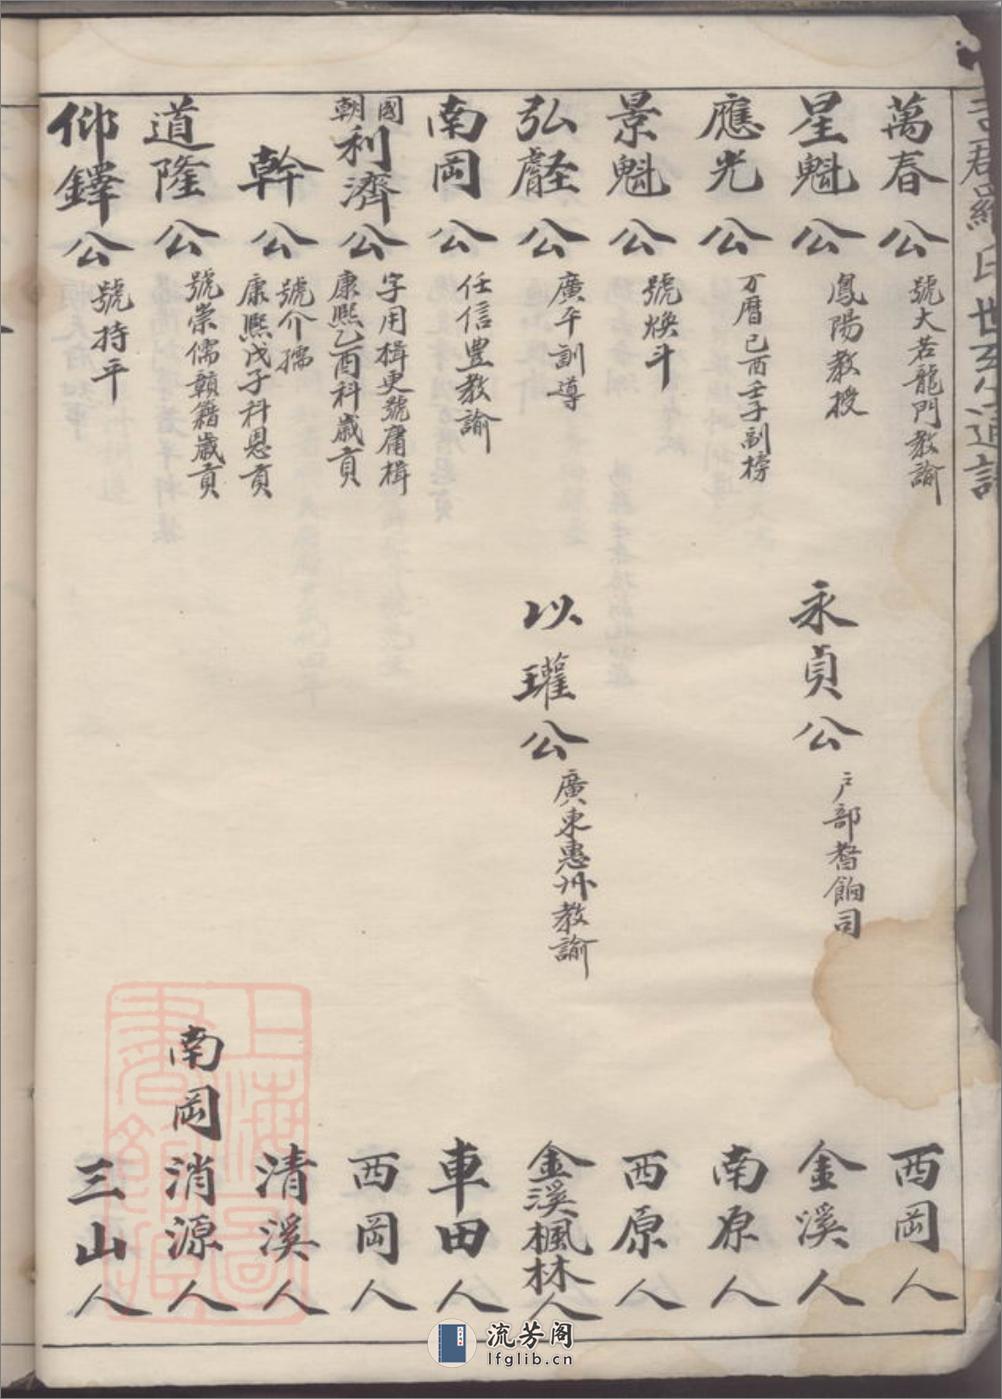 羅氏世系通譜
萬春公 號大若龍門教諭 西岡人
星魁公 鳳陽教授 永貞公 户部督餉司 金溪人
應光公 万曆己酉壬子副榜 南原人
景魁公 號煥斗 西原人
弘公 廣平訓導 以瓘公 廣東惠州教諭 金溪楓林人
南岡公 任信豊教諭 車田人
國朝
利濟公 字用楫更號庸楫 康熙乙酉科歲貢 西岡人
幹公 號介孺 康熙戊子科恩貢 清溪人
道隆公 號崇儒贛籍歲貢 南岡消源人
仰鐸公 號持平 三山人
上海圖書館藏
流芳阁
lfglib.cn